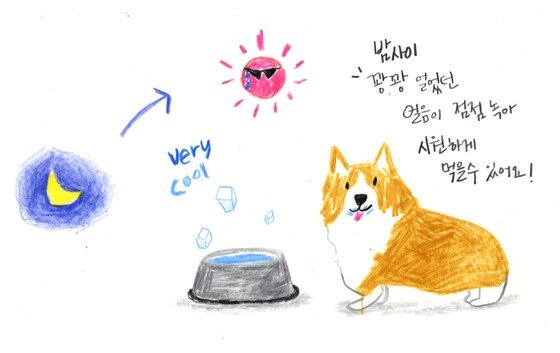 밤사이
꽝꽝 얼었던
얼음이 점점 녹아
시원하게
먹을수 있어요!
very
cool